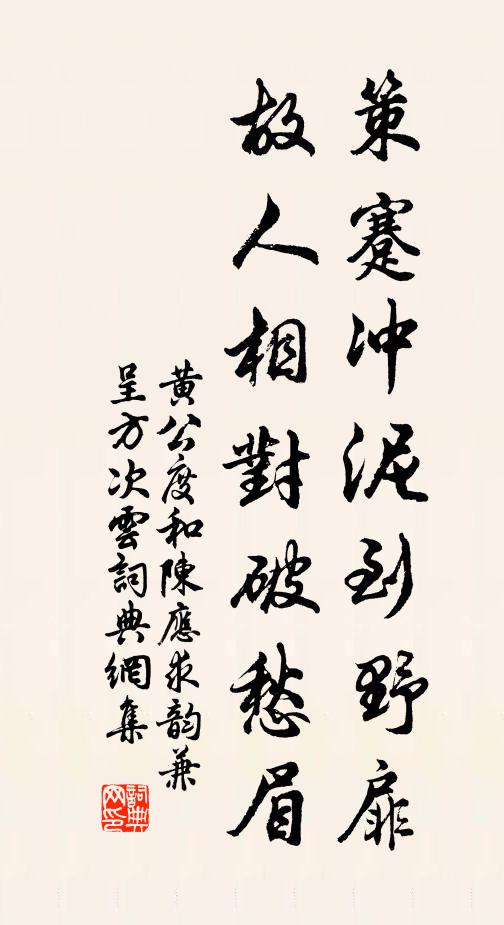 策蹇冲泥到野扉
故人相對破愁眉
黄公度和陳應求韵兼
呈方次雲詞典網集
詞典
网印